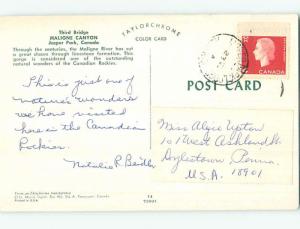 Third Bridge
MALIGNE CANYON
Jasper Park, Canada
Through the centuries, the Maligne River has cut
a great chasm through limestone formation. This
gorge is considered one of the outstanding
natural wonders of the Canadian Rockies.
TAYLORCHROME
COLOR CARD
CANADA
POST CARD
This is just one of
nature's wonders
we have visited
here in the Canadian
Rockies.
Natalie R Beidler
Miss Algie Upton
101 West Ashland St.
Doylestown, Penna.
U.S.A. 18901
Printed in U.S.A.